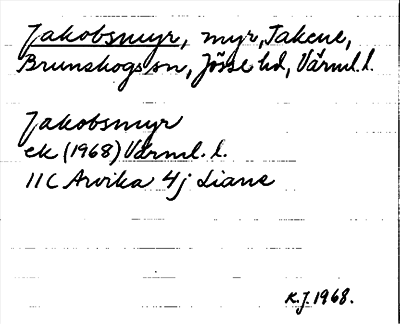 Jakobsmyr, myr, Takene,
Brunskogs sn, Jösse hd, Värml. l.
Jakobsmyr
ek (1968) Värml. l.
11C Arvika 4j Liane
K.J. 1968.